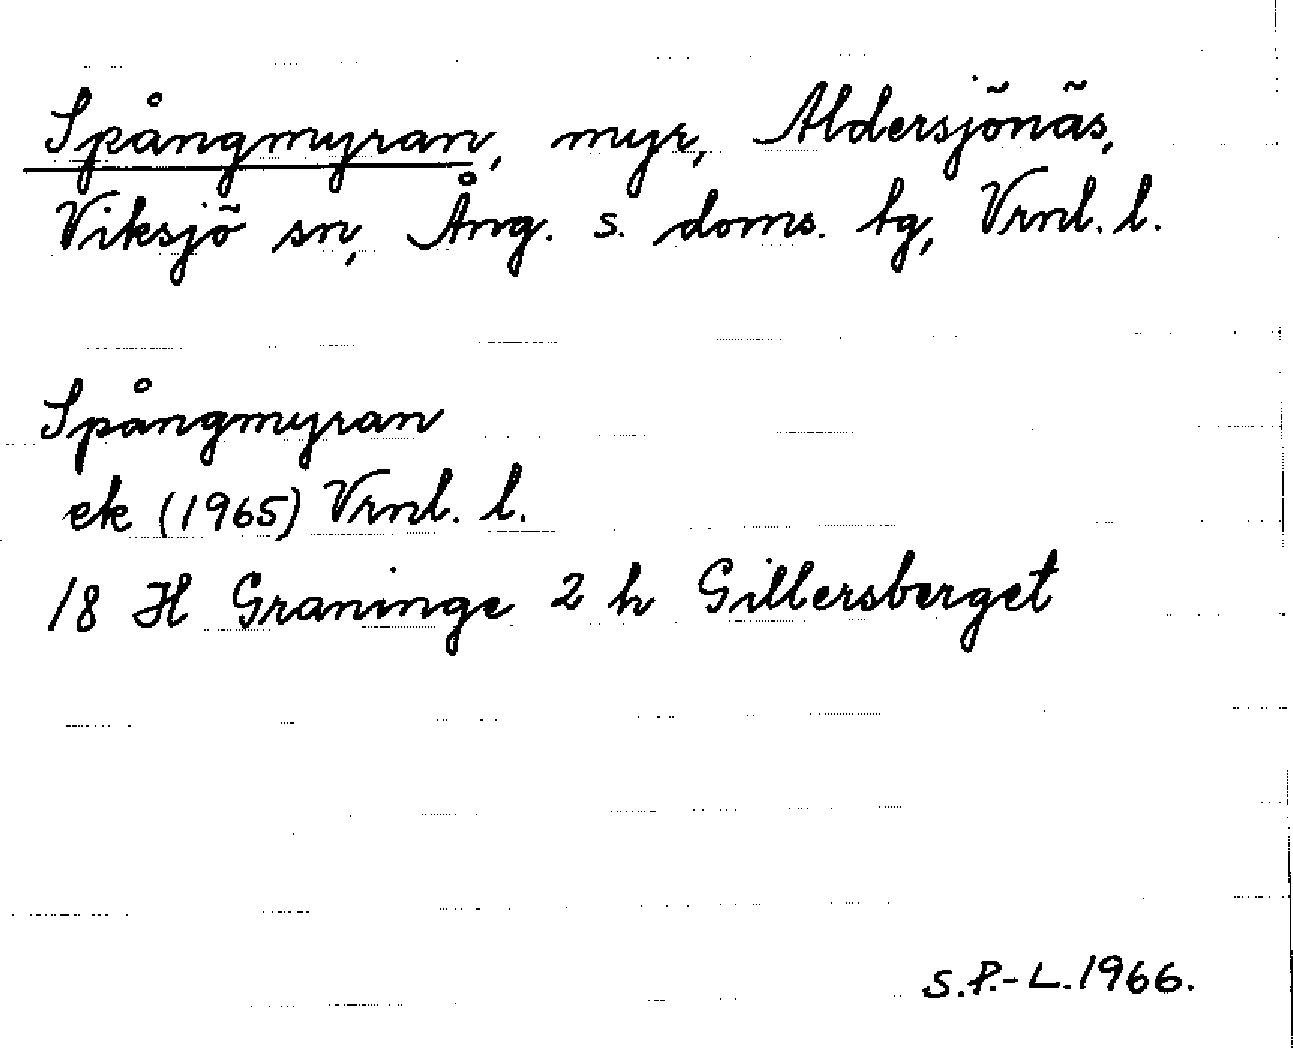 Spångmyran, myr, Aldersjönäs,
Viksjö sn, Ång. s. doms. tg, Vrnl. l.
Spångmyran
ek (1965) Vrnl. l.
18 H Graninge 2 h Gillersberget
S.P.-L. 1966.